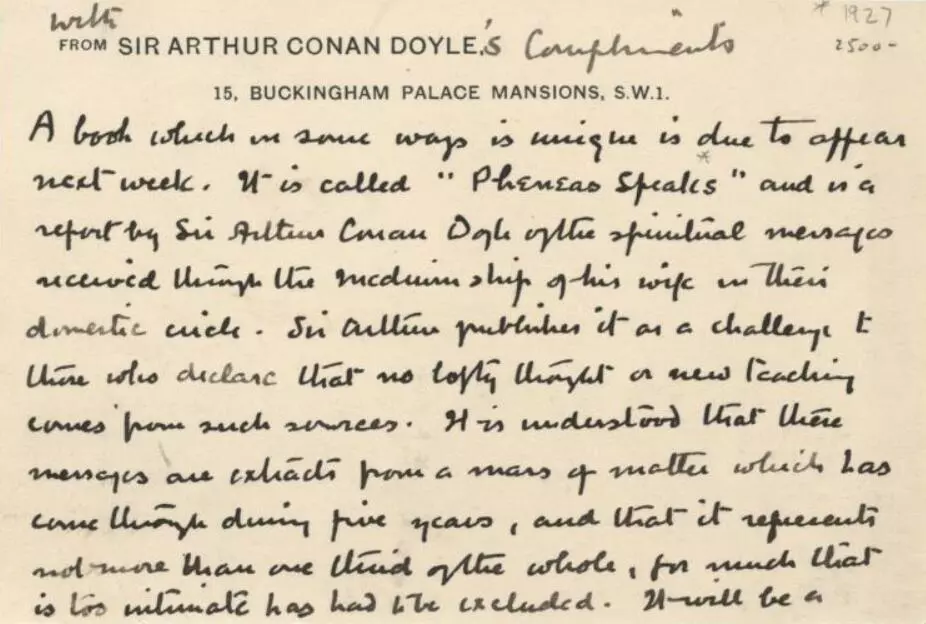 with
FROM SIR ARTHUR CONAN DOYLE,'s Compliments
* 1927
2500-
15, BUCKINGHAM PALACE MANSIONS, S.W.1.
A book which in some ways is unique is due to appear
*
next week. It is called "Pheneas Speaks" and is a
report by Sir Arthur Conan Doyle of the spiritual messages
received through the mediumship of his wife in their
domestic circle. Sir Arthur publishes it as a challenge to
those who declare that no lofty thought or new teaching
comes from such sources. It is understood that these
messages are extracts from a mass of matter which has
come through during five years, and that it represents
not more than one third of the whole, for much that
is too intimate has had to be excluded. It will be a